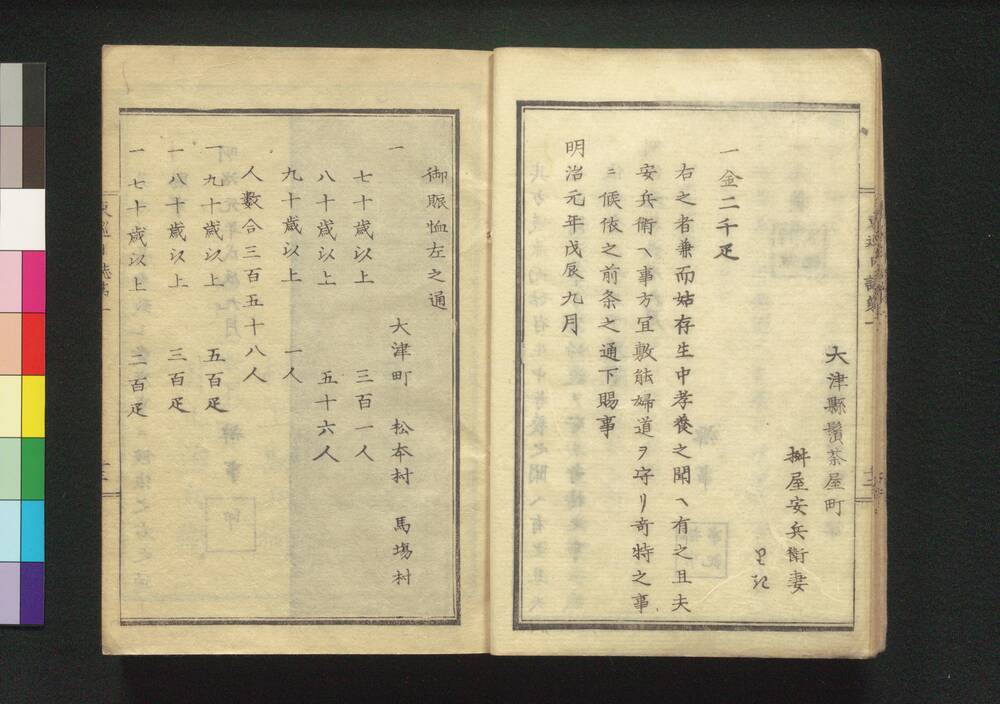 大津縣鬢茶屋町
桝屋安兵衛妻
一金二千疋
右之者兼而姑存生中孝養之聞ヘ有之且夫
安兵衛ヘ事方宜敷能婦道ヲ守リ奇特之事
ニ候依之前条之通下賜事
明治元年戊辰九月
御賑恤左之通
一 大津町 松本村 馬場村
七十歳以上 三百一人
八十歳以上 五十六人
九十歳以上 一人
人数合三百五十八人
一九十歳以上 五百疋
一八十歳以上 三百疋
一七十歳以上 二百疋